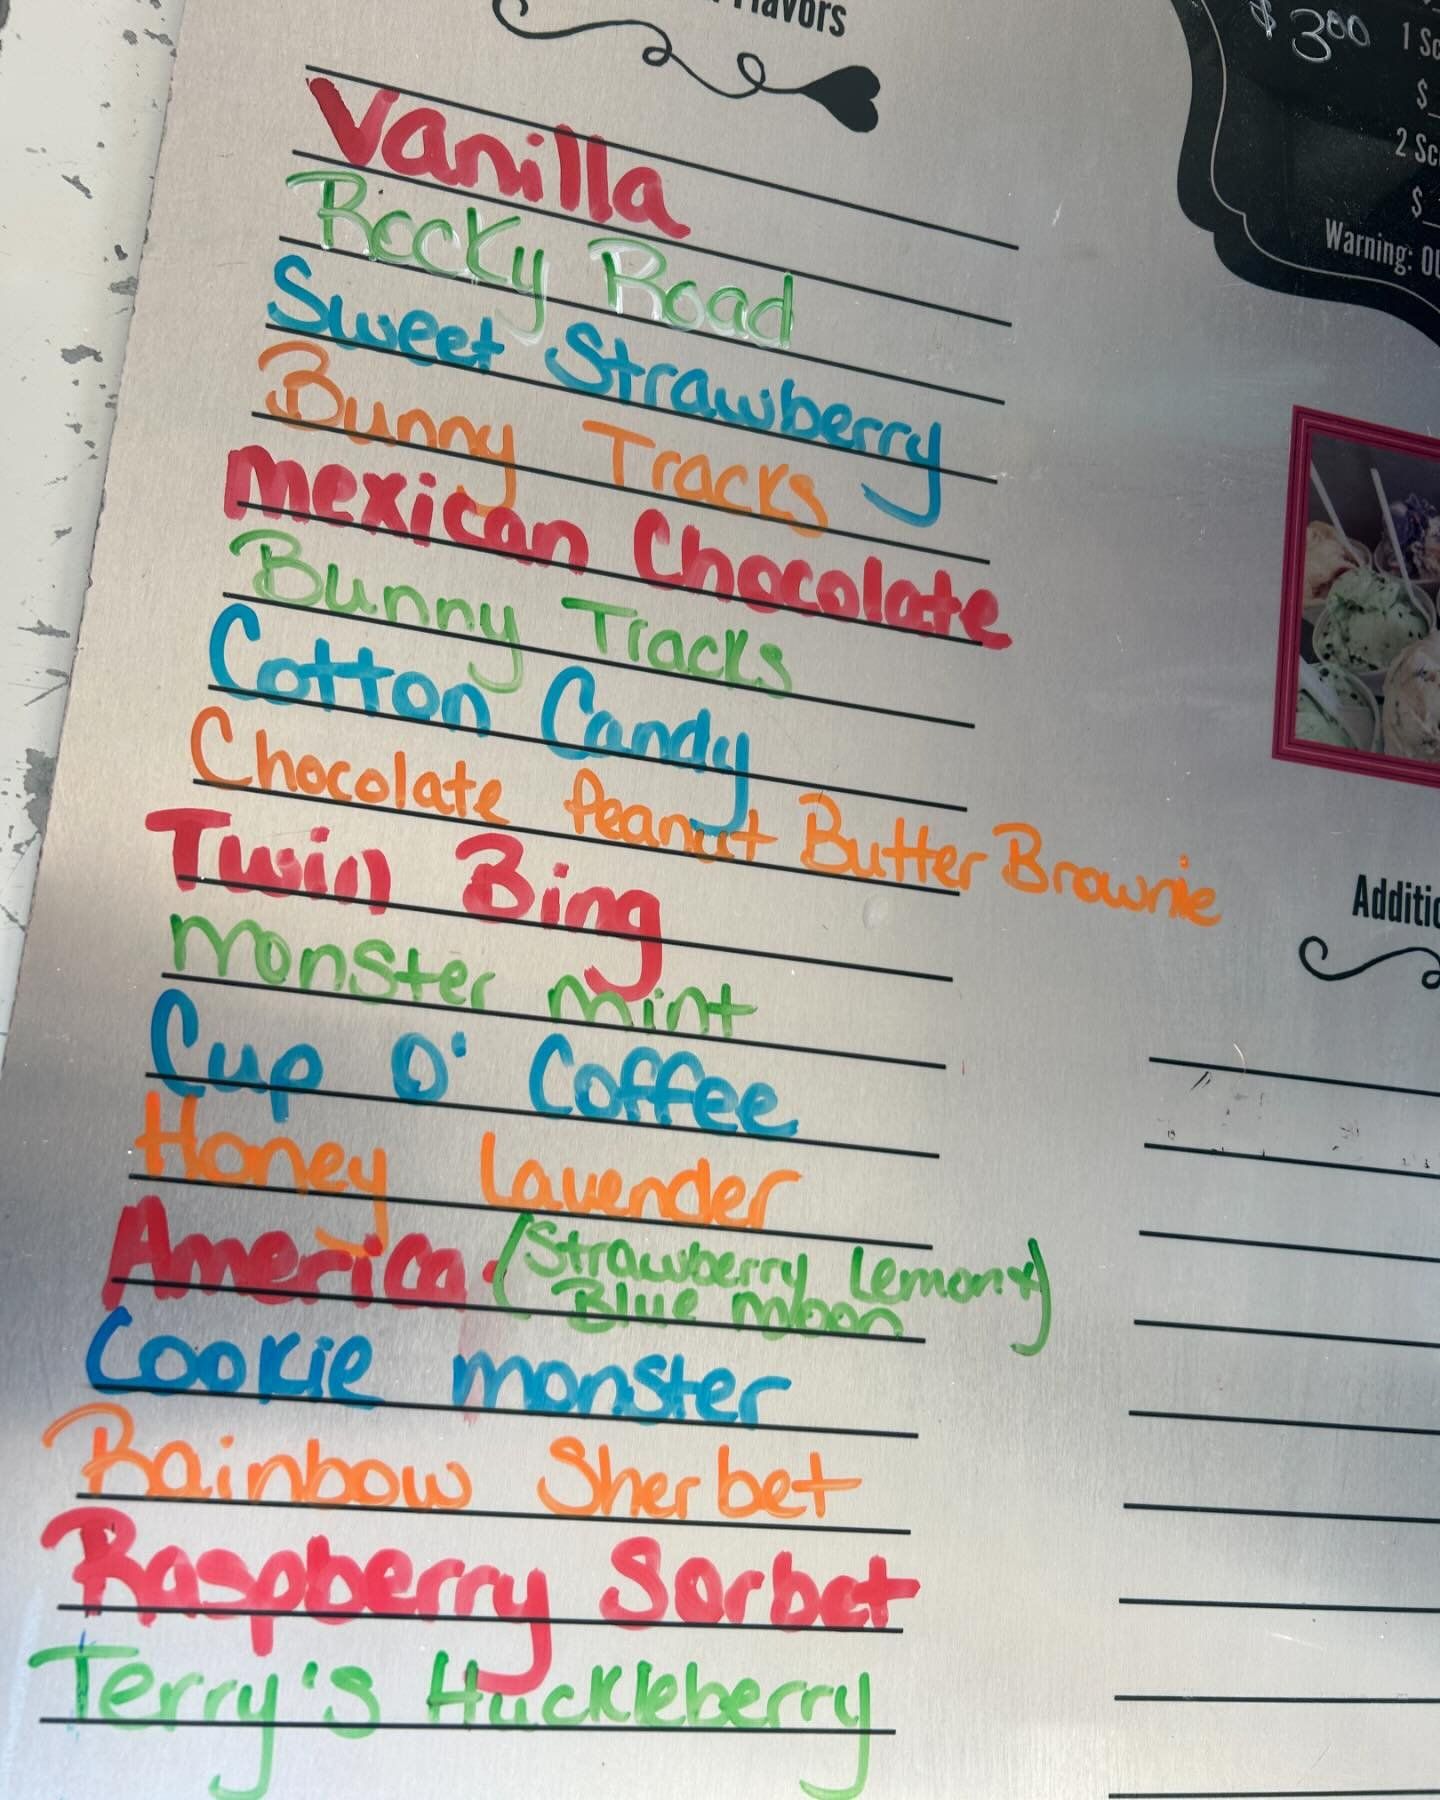 Flavors
Vanilla
Rocky Road
Sweet Strawberry
Bunny Tracks
Mexican Chocolate
Bunny Tracks
Cotton Candy
Chocolate Peanut Butter Brownie
Twin Bing
Monster Mint
Cup O' Coffee
Honey Lavender
America (Strawberry Lemon +
Blue Moon)
Cookie Monster
Rainbow Sherbet
Raspberry Sorbet
Terry's Huckleberry
$ 3.00
1
$
2
$
Warning: